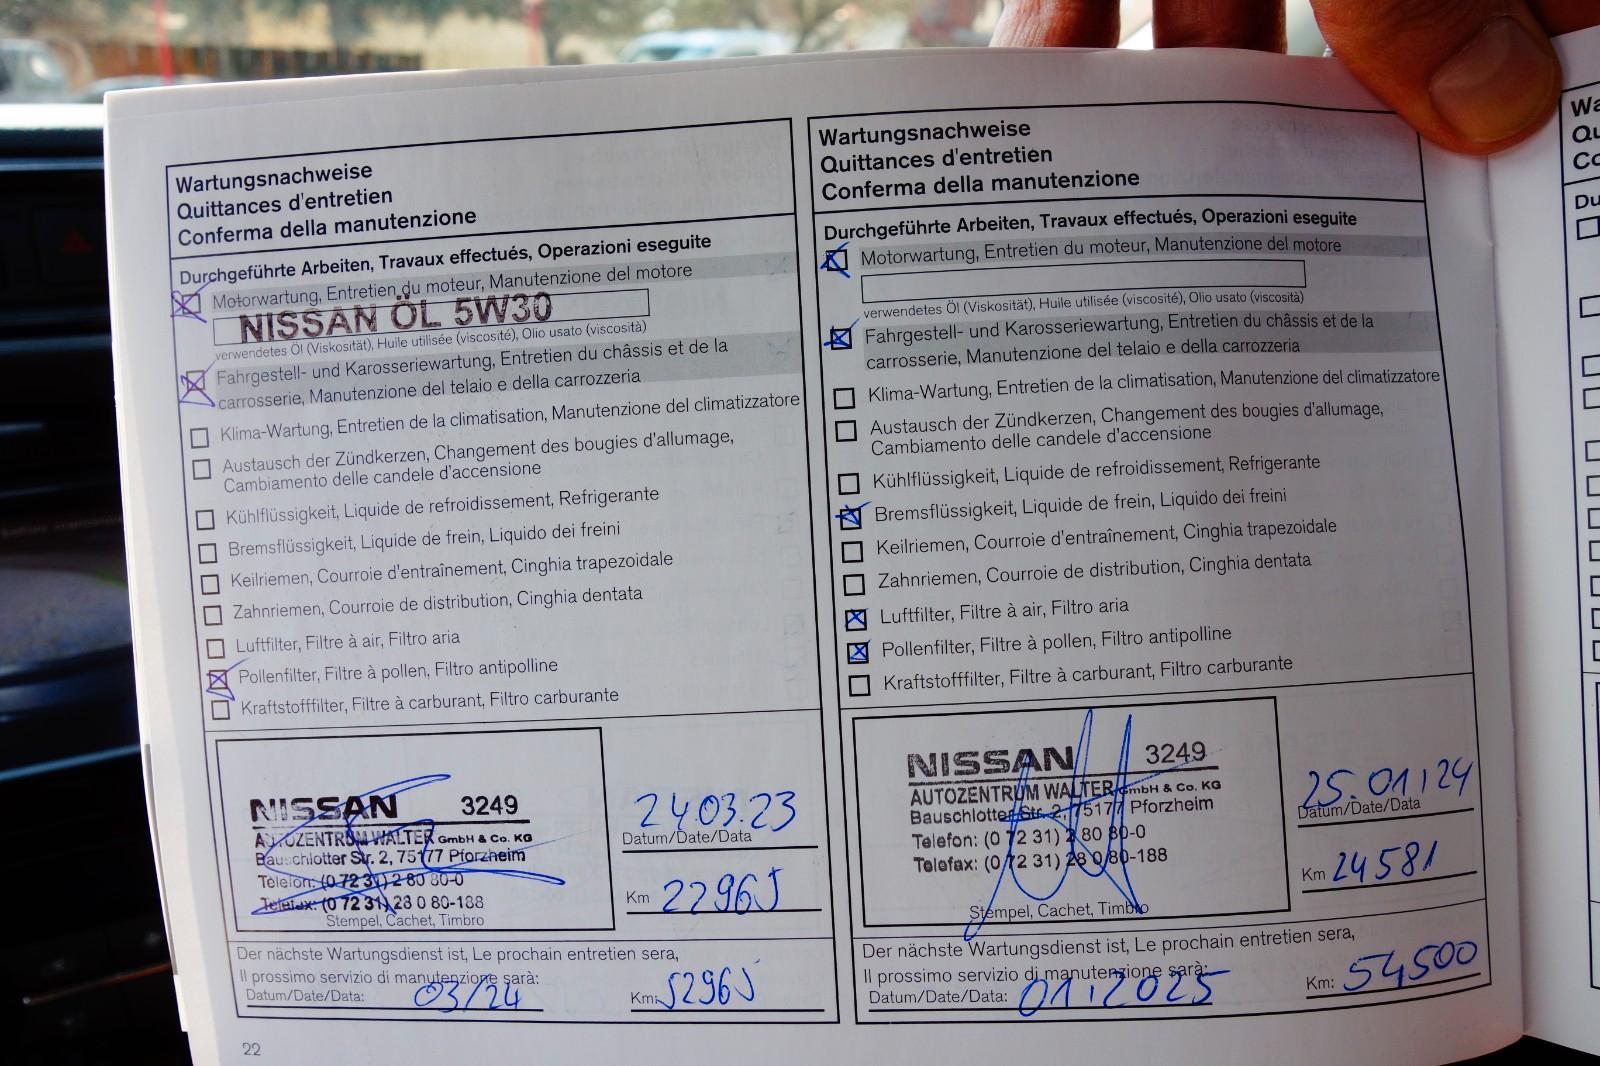 Wartungsnachweise
Quittances d'entretien
Conferma della manutenzione
Durchgeführte Arbeiten, Travaux effectués, Operazioni eseguite
Motorwartung, Entretien du moteur, Manutenzione del motore
NISSAN ÖL 5W30
verwendetes Öl (Viskosität), Huile utilisée (viscosité), Olio usato (viscosità)
Fahrgestell- und Karosseriewartung, Entretien du châssis et de la
carrosserie, Manutenzione del telaio e della carrozzeria
Klima-Wartung, Entretien de la climatisation, Manutenzione del climatizzatore
Austausch der Zündkerzen, Changement des bougies d'allumage,
Cambiamento delle candele d'accensione
Kühlflüssigkeit, Liquide de refroidissement, Refrigerante
Bremsflüssigkeit, Liquide de frein, Liquido dei freini
Keilriemen, Courroie d'entraînement, Cinghia trapezoidale
Zahnriemen, Courroie de distribution, Cinghia dentata
Luftfilter, Filtre à air, Filtro aria
Pollenfilter, Filtre à pollen, Filtro antipolline
Kraftstofffilter, Filtre à carburant, Filtro carburante
NISSAN 3249
AUTOZENTRUM WALTER GmbH & Co. KG
Bauschlotter Str. 2, 75177 Pforzheim
Telefon: (0 72 31) 2 80 80-0
Telefax: (0 72 31) 28 0 80-188
Stempel, Cachet, Timbro
24.03.23
Datum/Date/Data
Km 22965
Der nächste Wartungsdienst ist, Le prochain entretien sera,
Il prossimo servizio di manutenzione sarà:
Datum/Date/Data: 03/24 Km: 52965
22
Wartungsnachweise
Quittances d'entretien
Conferma della manutenzione
Durchgeführte Arbeiten, Travaux effectués, Operazioni eseguite
Motorwartung, Entretien du moteur, Manutenzione del motore
verwendetes Öl (Viskosität), Huile utilisée (viscosité), Olio usato (viscosità)
Fahrgestell- und Karosseriewartung, Entretien du châssis et de la
carrosserie, Manutenzione del telaio e della carrozzeria
Klima-Wartung, Entretien de la climatisation, Manutenzione del climatizzatore
Austausch der Zündkerzen, Changement des bougies d'allumage,
Cambiamento delle candele d'accensione
Kühlflüssigkeit, Liquide de refroidissement, Refrigerante
Bremsflüssigkeit, Liquide de frein, Liquido dei freini
Keilriemen, Courroie d'entraînement, Cinghia trapezoidale
Zahnriemen, Courroie de distribution, Cinghia dentata
Luftfilter, Filtre à air, Filtro aria
Pollenfilter, Filtre à pollen, Filtro antipolline
Kraftstofffilter, Filtre à carburant, Filtro carburante
NISSAN 3249
AUTOZENTRUM WALTER GmbH & Co. KG
Bauschlotter Str. 2, 75177 Pforzheim
Telefon: (0 72 31) 2 80 80-0
Telefax: (0 72 31) 28 0 80-188
Stempel, Cachet, Timbro
25.01.24
Datum/Date/Data
Km 24581
Der nächste Wartungsdienst ist, Le prochain entretien sera,
Il prossimo servizio di manutenzione sarà:
Datum/Date/Data: 01.2025 Km: 54500
Wa
Qu
Co
Du